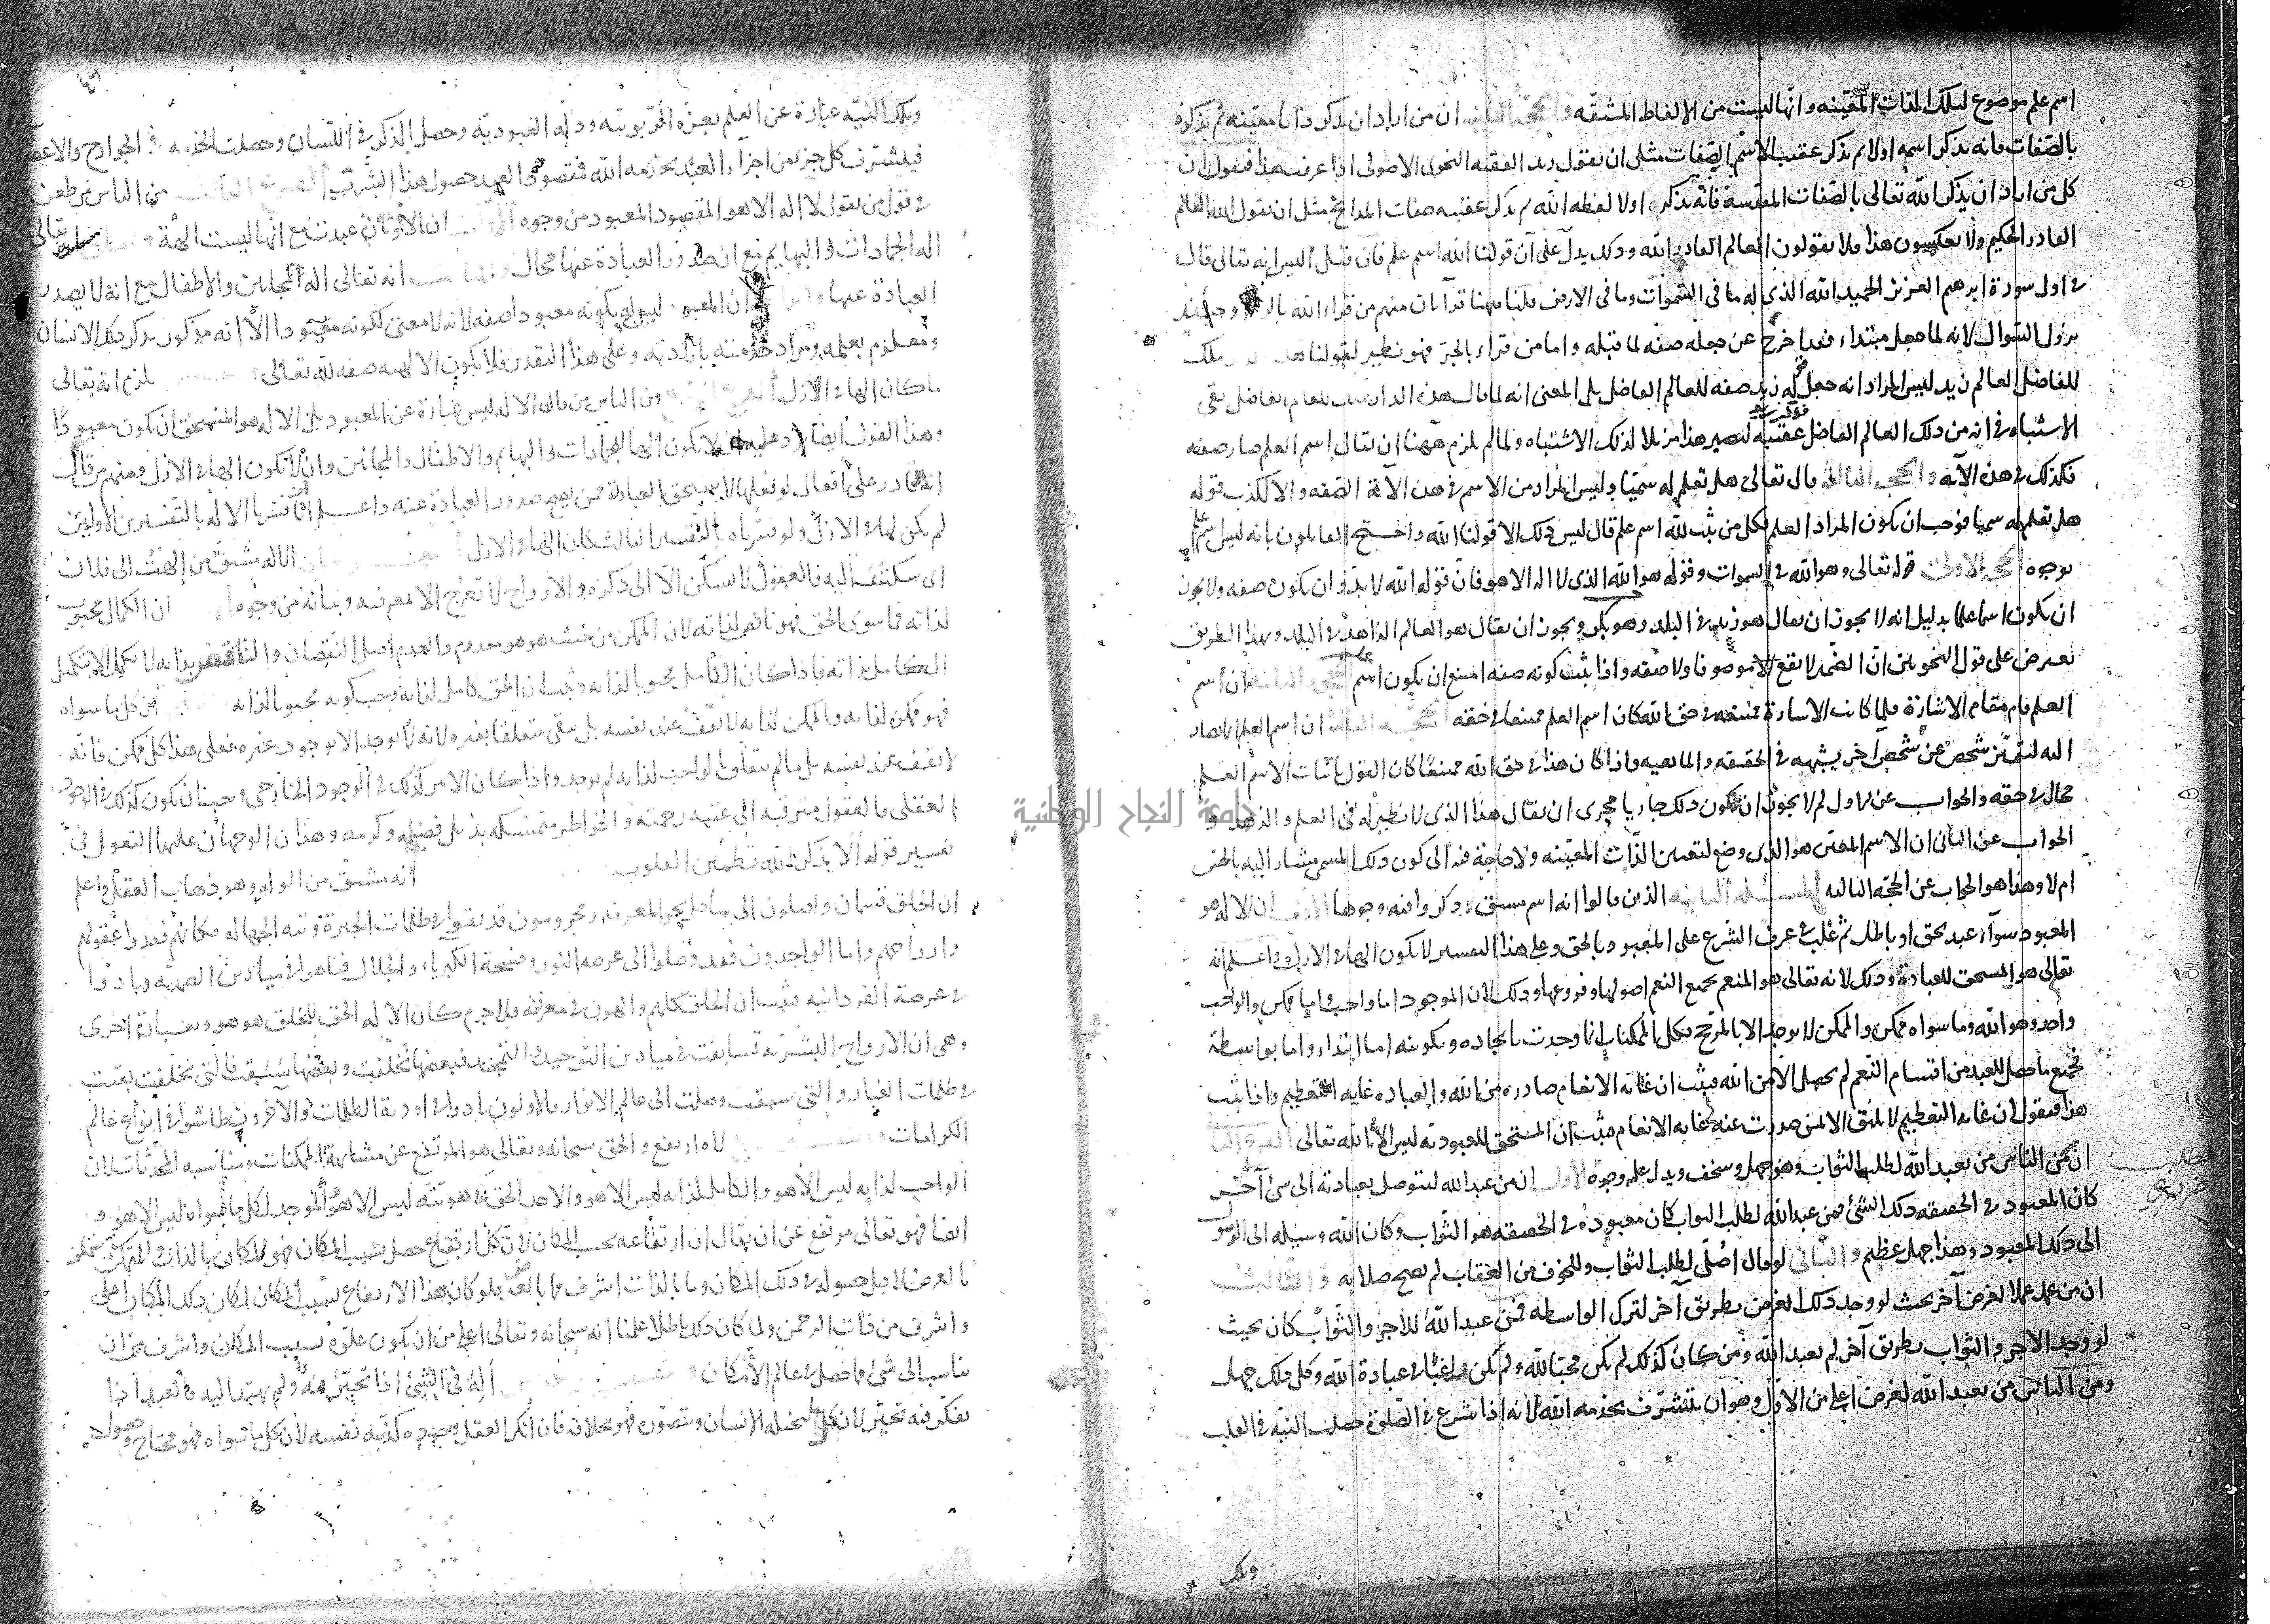 اسم علم موضوع لتلك الذات المعينه وانها ليست من الالفاظ المشتقه والحجة الثانيه ان من اراد ان يذكر ذاتا معينه ثم يذكره
بالصفات فانه يذكر اسمه اولا ثم يذكر عقيب الاسم الصفات مثل ان يقول زيد الفقيه النحوى الاصولى اذا عرفت هذا فنقول ان
كل من اراد ان يذكر الله تعالى بالصفات المقدسة فانه يذكر اولا لفظه الله ثم يذكر عقيبه صفات المدائح مثل ان يقول الله العالم
القادر الحكيم ولا يعكسون هذا فلا يقولون العالم القادر الله وذلك يدل على ان قولنا الله اسم علم فان قيل اليس انه تعالى قال
فى اول سورة ابرهيم العزيز الحميد الله الذى له ما فى السموات وما فى الارض قلنا ههنا قرآتان منهم من قراء الله بالرفع وحينئذ
يزول السوال لانه لما جعل مبتداء فقد اخرج عن جعله صفه لما قبله واما من قراء بالجر فهو نظير لقولنا ملك
للفاضل العالم زيد ليس المراد انه جعل زيد صفه للعالم الفاضل بل المعنى انه لما قال بقى
الاشتباه فى انه من ذلك العالم الفاضل عقيبه ليصير هذا مزيلا لذلك الاشتباه ولما لم يلزم ههنا ان يقال اسم العلم صار صفه
فكذلك فى هذه الآيه والحجه الثالثه قال تعالى هل تعلم له سميا وليس المراد من الاسم فى هذه الآية الصفه والا لكذب قوله
هل تعلم له سميا فوجب ان يكون المراد العلم فكل من يثبت لله اسم علم قال ليس ذلك الا قولنا الله واحتج القايلون بانه ليس اسم علم
بوجوه الحجه الاولى قوله تعالى وهو الله فى السموات وقوله هو الله الذى لا اله الا هو فان قوله الله لا بد وان يكون صفه ولا يجوز
ان يكون اسما علما بدليل انه لا يجوز ان يقال هو زيد فى البلد وهو بكر ويجوز ان يقال هو العالم الزاهد فى البلد وبهذا الطريق
يعترض على قول النحويين ان الضمير لا يقع لا موصوفا ولا صفه واذا ثبت كونه صفه امتنع ان يكون اسم علم الحجه الثانيه ان اسم
العلم قام مقام الاشارة فلما كانت الاشارة ممتنعه فى حق الله كان اسم العلم ممتنعا فى حقه الحجه الثالثه ان اسم العلم انما يصار
اليه ليتميز شخص عن شخص آخر يشبهه فى الحقيقه والماهيه واذا كان هذا فى حق الله ممتنعا كان القول باثبات الاسم العلم
محالا فى حقه والجواب عن الاول لم لا يجوز ان يكون ذلك جاريا مجرى ان يقال هذا الذى لا نظير له فى العلم والزهد و
الجواب عن الثانى ان الاسم المعين هو الذى وضع لتعيين الذات المعينه ولا حاجة فيه الى كون ذلك المسمى مشار اليه بالحس
ام لا وهذا هو الجواب عن الحجه الثالثه المسئله الثانيه الذين قالوا انه اسم مشتق ذكروا فيه وجوها الاول ان الاله هو
المعبود سوآء عبد بحق او باطل ثم غلب فى عرف الشرع على المعبود بالحق وعلى هذا التفسير لا يكون الها فى الازل واعلم انه
تعالى هو المستحق للعبادة وذلك لانه تعالى هو المنعم بجميع النعم اصولها وفروعها وذلك لان الموجود اما واجب واما ممكن والواجب
واحد وهو الله وما سواه ممكن والممكن لا يوجد الا بالمرجح فكل الممكنات انما وجدت بايجاده وتكوينه اما ابتداء واما بواسطة
فجميع ما حصل للعبد من اقسام النعم لم يحصل الا من الله فيثبت ان غاية الانعام صادره من الله والعباده غايه التعظيم واذا ثبت
هذا فنقول ان غايه التعظيم لا يليق الا لمن صدرت عنه غايه الانعام فثبت ان المستحق للعبوديه ليس الا الله تعالى الفرع الثانى
ان من الناس من يعبد الله لطلب الثواب وهو جهل وسخف ويدل عليه وجوه الاول ان من عبد الله ليتوصل بعبادته الى شئ آخر
كان المعبود فى الحقيقه ذلك الشئ فمن عبد الله لطلب الثواب كان معبوده فى الحقيقه هو الثواب وكان الله وسيله الى الوصول
الى ذلك المعبود وهذا جهل عظيم والثانى لو قال اصلى لطلب الثواب وللخوف من العقاب لم يصح صلاته والثالث
ان من عمل عملا لغرض آخر بحيث لو وجد ذلك الغرض بطريق آخر لترك الواسطه فمن عبد الله للاجر والثواب كان بحيث
لو وجد الاجر والثواب بطريق آخر لم يعبد الله ومن كان كذلك لم يكن محبا لله ولم يكن راغبا فى عبادة الله وكل ذلك جهل
ومن الناس من يعبد الله لغرض اعلى من الاول وهو ان يتشرف بخدمه الله لانه اذا شرع فى الصلوة حصلت النيه فى القلب
وتلك
وتلك النيه عبارة عن العلم بعزه الربوبيه وذله العبوديه وحصل الذكر فى اللسان وحصلت الخدمه فى الجوارح والاعضا
فيتشرف كل جزء من اجزآء العبد بخدمه الله فمقصود العبد حصول هذا الشرف الفرع الثالث من الناس من طعن
فى قول من يقول لا اله الا هو المقصود المعبود من وجوه ان الاوثان عبدت مع انها ليست الهة تعالى
اله الجمادات والبهايم مع ان صدور العبادة عنها محال انه تعالى اله المجانين والاطفال مع انه لا يصدر
العبادة عنها ان المعبود ليس له بكونه معبودا صفه لانه لا معنى لكونه معبودا الا انه مذكور بذكر ذلك الانسان
ومعلوم بعلمه ومراد خدمته بارادته وعلى هذا التقدير فلا يكون الالهيه صفه لله تعالى يلزم انه تعالى
ما كان الها فى الازل الفرع الرابع من الناس من قال الاله ليس عبارة عن المعبود بل الاله هو المستحق ان يكون معبودا
وهذا القول ايضا يرد عليه ان لا يكون الها للجمادات والبهايم والاطفال والمجانين وان لا يكون الها فى الازل ومنهم من قال
انه القادر على افعال لو فعلها لاستحق العبادة ممن يصح صدور العبادة عنه واعلم انا ان فسرنا الاله بالتفسيرين الاولين
لم يكن الها فى الازل ولو فسرناه بالتفسير الثالث كان الها فى الازل الاله مشتق من الهت الى فلان
اى سكنت اليه فالعقول لا تسكن الا الى ذكره والارواح لا تعرج الا لمعرفته وبيانه من وجوه ان الكمال محبوب
لذاته فما سوى الحق فهو ناقص لذاته لان الممكن من حيث هو هو معدوم والعدم اصل النقصان والناقص بذاته لا يكمل الا بتكميل
الكامل بذاته فاذا كان الكامل محبوبا لذاته وثبت ان الحق كامل لذاته وجب كونه محبوبا لذاته ان كل ما سواه
فهو ممكن لذاته والممكن لذاته لا يقف عند نفسه بل يبقى متعلقا بغيره لانه لا يوجد الا بوجود غيره فعلى هذا كل ممكن فانه
لا يقف عند نفسه بل ما لم يتعلق بالواجب لذاته لم يوجد واذا كان الامر كذلك فى الوجود الخارجى وجب ان يكون كذلك فى الوجود
العقلى فالعقول مترقبه الى عتبه رحمته والخواطر متمسكه بذيل فضله وكرمه وهذان الوجهان عليهما التعويل فى
تفسير قوله الا بذكر الله تطمئن القلوب انه مشتق من الوله وهو ذهاب العقل واعلم
ان الخلق قسمان واصلون الى ساحل بحر المعرفه ومحرومون قد بقوا فى ظلمات الحيرة وتيه الجهاله فكانهم فقدوا عقولهم
وارواحهم واما الواجدون فقد وصلوا الى عرصه النور وفسحة الكبريآء والجلال فتاهوا فى ميادين الصمديه وبادوا
فى عرصة الفردانيه فثبت ان الخلق كلهم والهون فى معرفته فلا جرم كان الاله الحق للخلق هو هو وبعبارة اخرى
وهى ان الارواح البشريه تسابقت فى ميادين التوحيد والتمجيد فبعضها تخلفت وبعضها سبقت فالتى تخلفت بقيت
فى ظلمات الغبار والتى سبقت وصلت الى عالم الانوار فالاولون بادوا فى اودية الظلمات والآخرون طاشوا فى انواع عالم
الكرامات لاه ارتفع والحق سبحانه وتعالى هو المرتفع عن مشابهة الممكنات ومناسبه المحدثات لان
الواجب لذاته ليس الا هو والكامل لذاته ليس الا هو والاحد الحق فى هويته ليس الا هو والموجد لكل ما سواه ليس الا هو و
ايضا فهو تعالى مرتفع عن ان يقال ان ارتفاعه بحسب المكان لان كل ارتفاع حصل بسبب المكان فهو للمكان بالذات وللمتمكن
بالعرض لاجل حصوله فى ذلك المكان وما بالذات اشرف مما بالغير فلو كان هذا الارتفاع بسبب المكان لكان ذلك المكان اعلى
واشرف من ذات الرحمن ولما كان ذلك باطلا علمنا انه سبحانه وتعالى اعلى من ان يكون علوه بسبب المكان واشرف من ان
يناسب الى شئ مما حصل فى عالم الامكان اله فى الشئ اذا تحير فيه ولم يهتد اليه فالعبد اذا
تفكر فيه تحير لان كل ما يتخيله الانسان ويتصوره فهو بخلافه فان انكر العقل وجوده كذبته نفسه لان كل ما سواه فهو محتاج وحصول
جامعة النجاح الوطنية